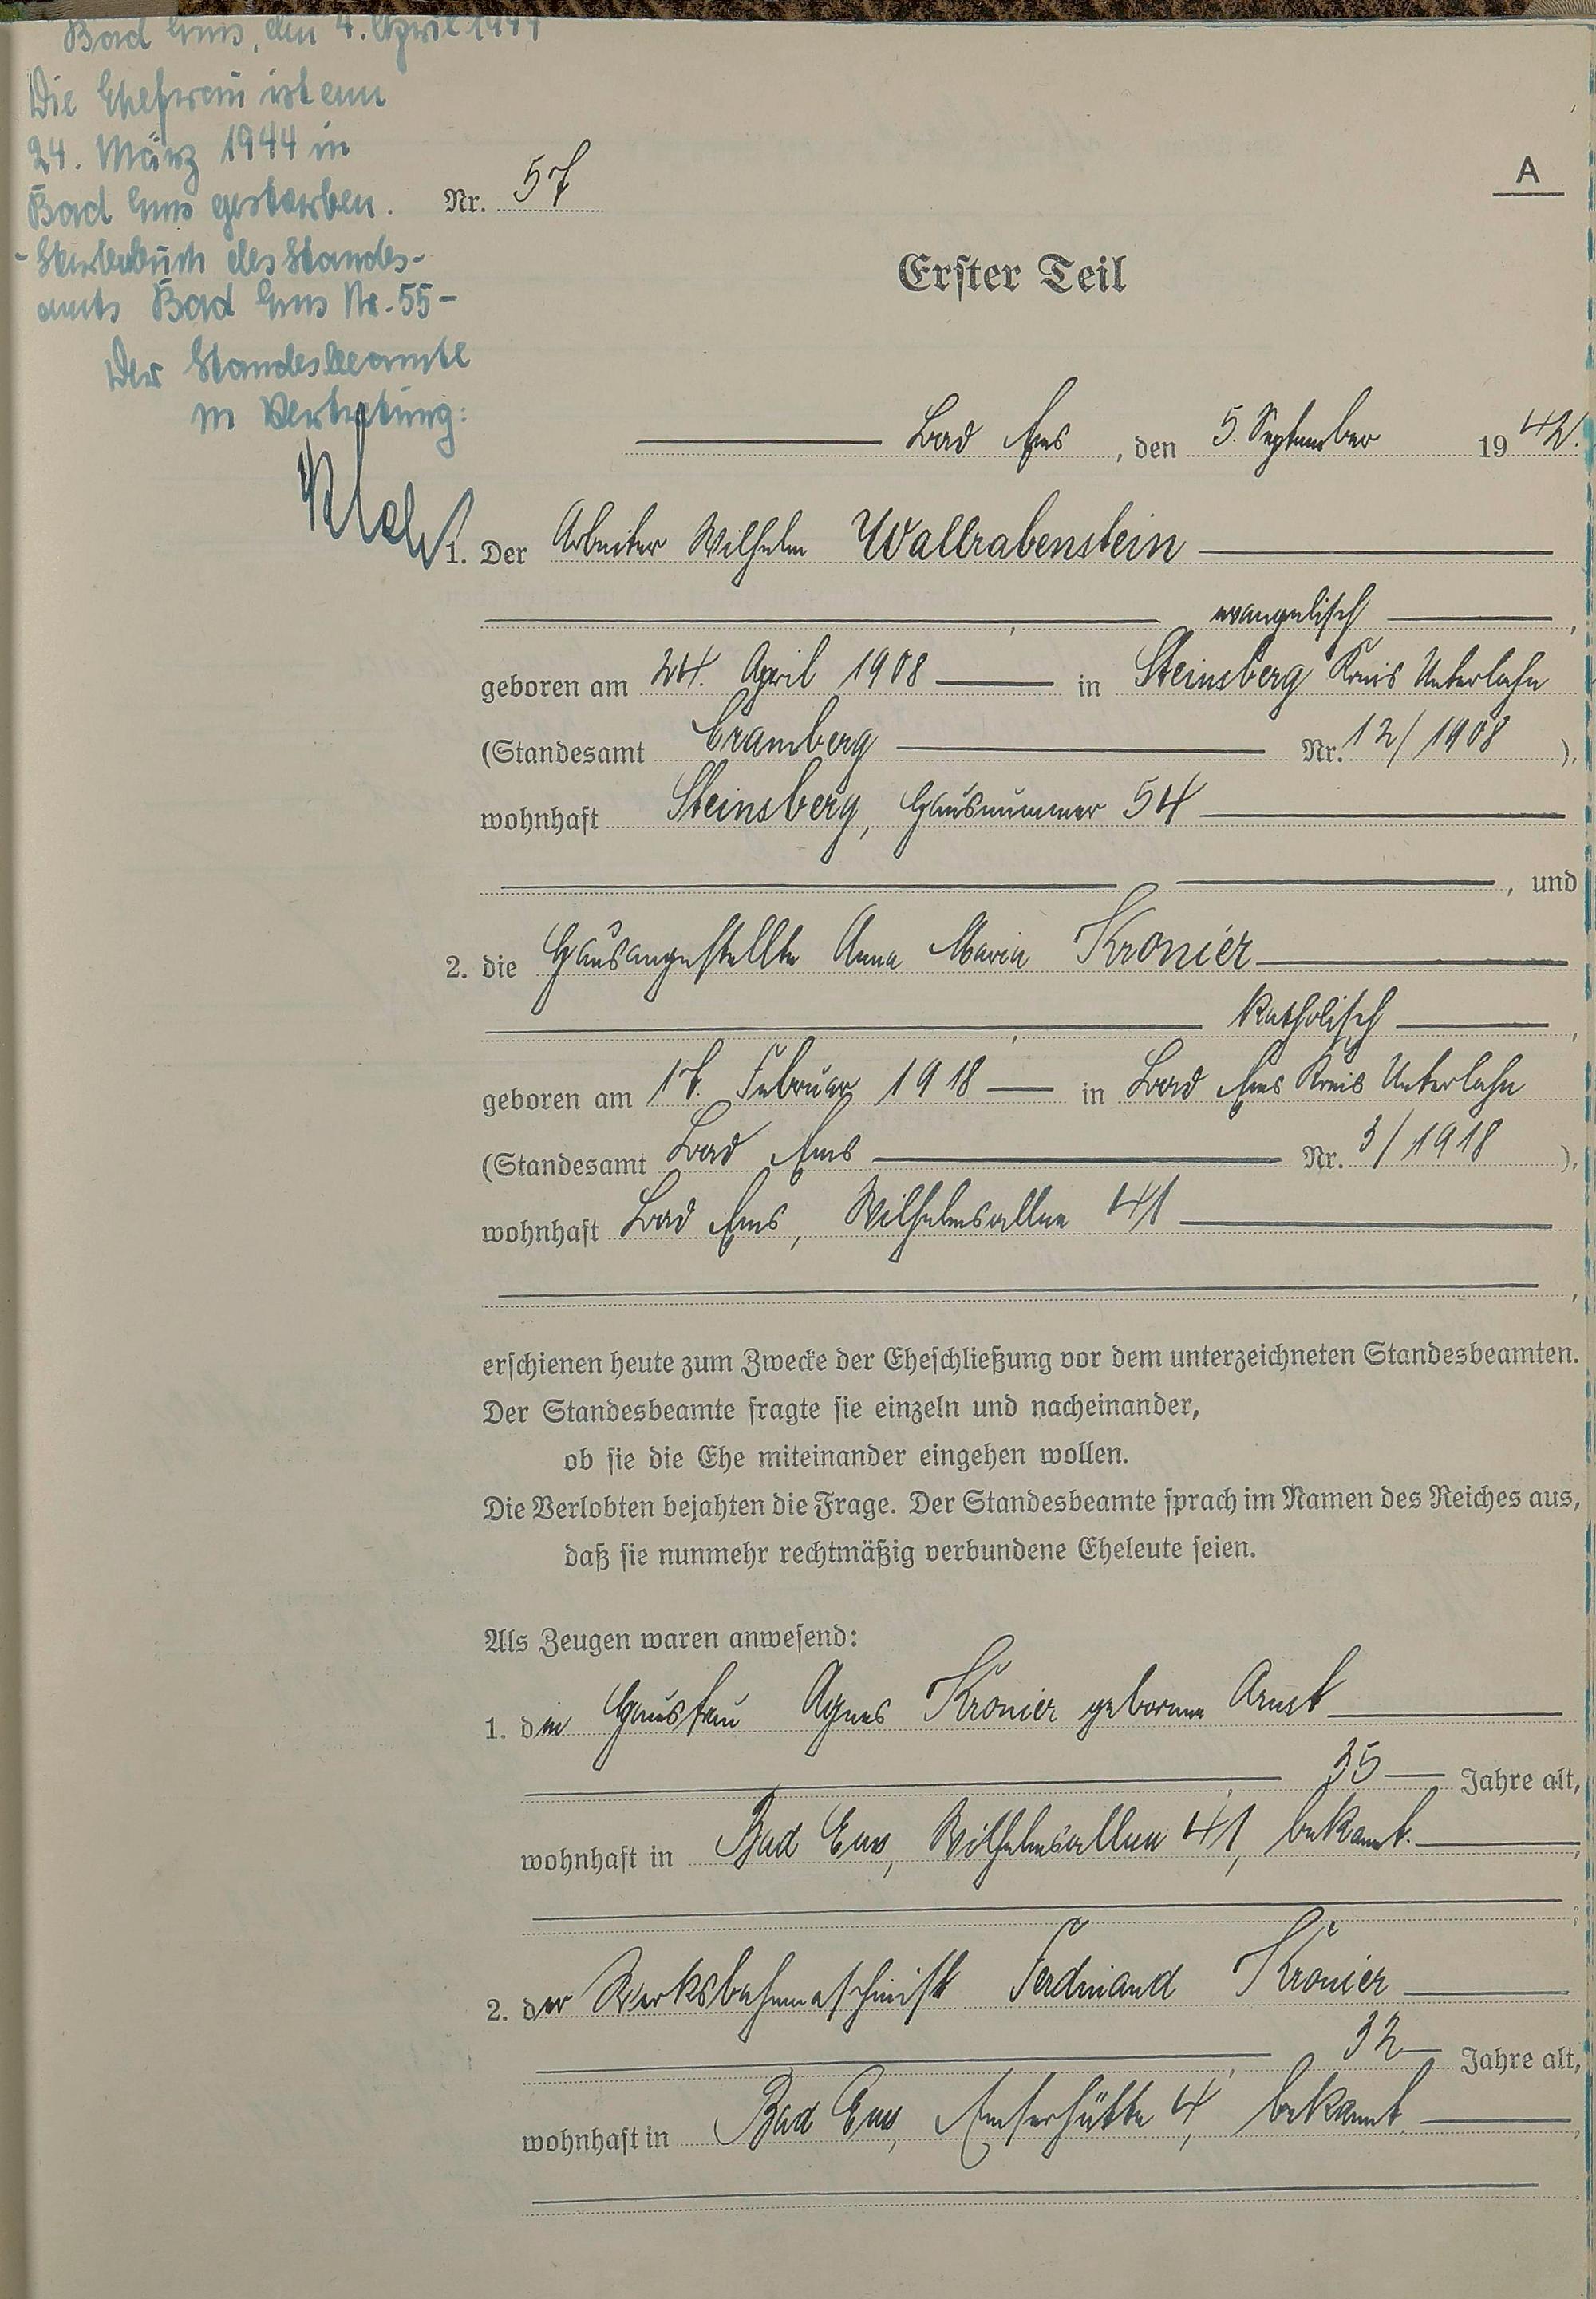 Bad Ems, den 4. April 1944
Die Ehefrau ist am
24. März 1944 in
Bad Ems gestorben.
- Sterbebuch des Standes-
amts Bad Ems Nr. 55 -
Der Standesbeamte
In Vertretung:
Nr. 57
A
Erster Teil
Bad Ems, den 5. September 1942.
1. Der Arbeiter Wilhelm Wallrabenstein
, evangelisch,
geboren am 24. April 1908 in Steinsberg Kreis Unterlahn
(Standesamt Cramberg Nr. 12/1908),
wohnhaft Steinsberg, Hausnummer 54
, und
2. die Hausangestellte Anna Maria Kronier
, katholisch,
geboren am 17. Februar 1918 in Bad Ems Kreis Unterlahn
(Standesamt Bad Ems Nr. 3/1918),
wohnhaft Bad Ems, Wilhelmsallee 41
,
erschienen heute zum Zwecke der Eheschließung vor dem unterzeichneten Standesbeamten.
Der Standesbeamte fragte sie einzeln und nacheinander,
ob sie die Ehe miteinander eingehen wollen.
Die Verlobten bejahten die Frage. Der Standesbeamte sprach im Namen des Reiches aus,
daß sie nunmehr rechtmäßig verbundene Eheleute seien.
Als Zeugen waren anwesend:
1. die Hausfrau Agnes Kronier geborene Arnst
, 35 Jahre alt,
wohnhaft in Bad Ems, Wilhelmsallee 41, bekannt.
;
2. der Werksbahnmaschinist Ferdinand Kronier
, 32 Jahre alt,
wohnhaft in Bad Ems, Emserhütte 4, bekannt.